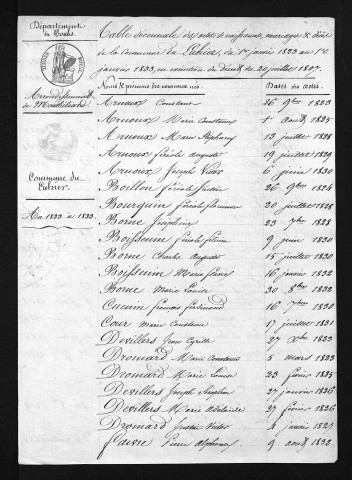 Département
du Doubs
Arrondissement
de Montbéliard
Commune du
An 1823 à 1833.
Table décennale des actes de naissances, mariages & décès
de la commune du 1er janvier 1823 au 1er
janvier 1833, en exécution du décret du 20 juillet 1807.
Noms & prénoms des nouveaux nés. Dates des actes.
Arnoux Constant 26 9bre 1823
Arnoux Marie Constance 1er août 1825
Arnoux Marie Stéphany 13 juillet 1828
Arnoux féréole auguste 19 juillet 1829
Arnoux Joseph Victor 6 juin 1830
Boillon féréole Justin 26 9bre 1824
Bourquin féréole florimon 20 juillet 1828
Borne Joséphine 23 7bre 1828
Boissenin féréole 9 juin 1830
Borne Charles Auguste 15 juillet 1830
Boissenin Marie 16 janvier 1832
Borne Marie Louise 30 8bre 1832
Cuenin françois ferdinand 16 7bre 1830
Cour Marie Constance 17 juillet 1831
Devillers Jean Cyrille 27 Xbre 1823
Dromard Marie Constance 5 mars 1823
Dromard Marie Louise 23 février 1825
Devillers Joseph Séraphin 27 janvier 1826
Devillers Marie Adélaïde 27 février 1826
Dromard Justin Victor 4 janvier
faivre Pierre Alphonse 9 août 1832